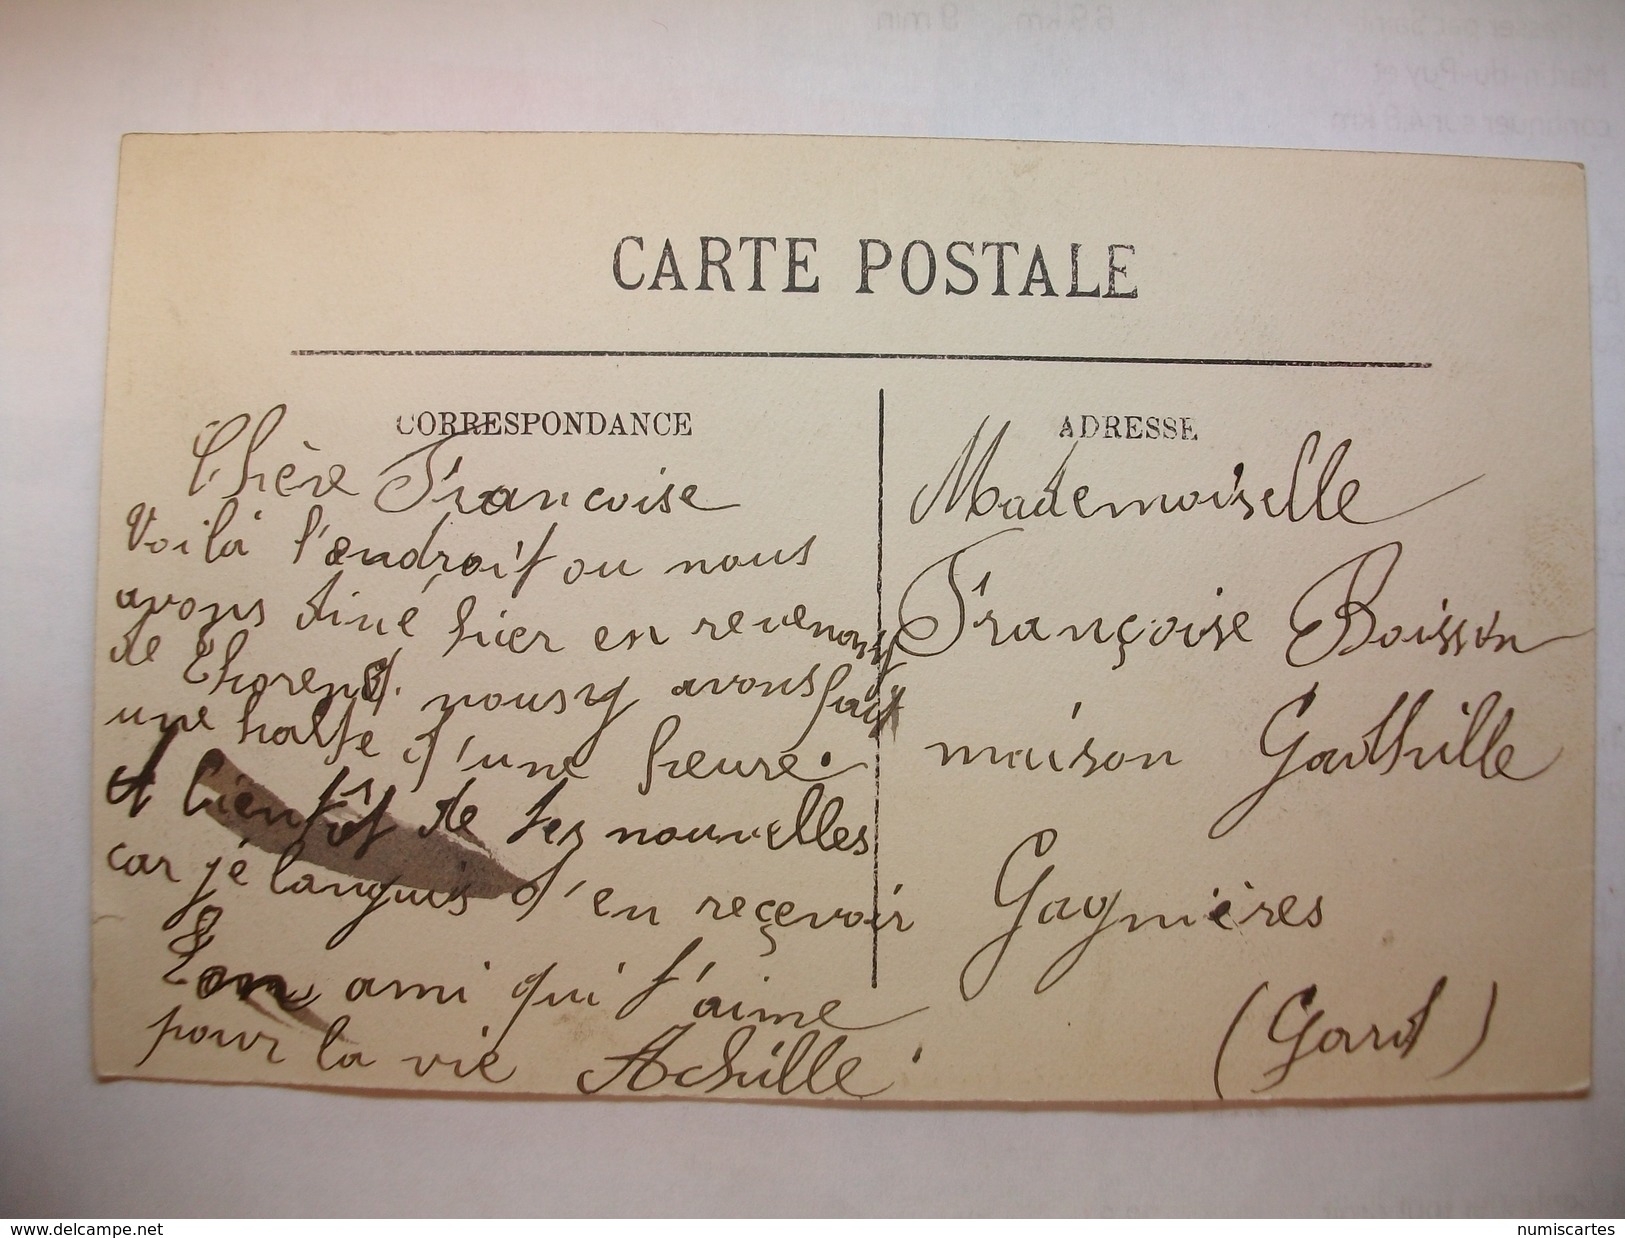 CARTE POSTALE
CORRESPONDANCE
Chère Francoise
Voilà l'endroit ou nous
avons diné hier en revenant
de Thorens. nous y avons fait
une halte d'une heure.
A bientôt de tes nouvelles
car je languis d'en reçevoir
Ton ami qui t'aime
pour la vie Achille
ADRESSE
Mademoiselle
Françoise Boisson
maison
Gagnières
(Gard)
www.delcampe.net
numiscartes